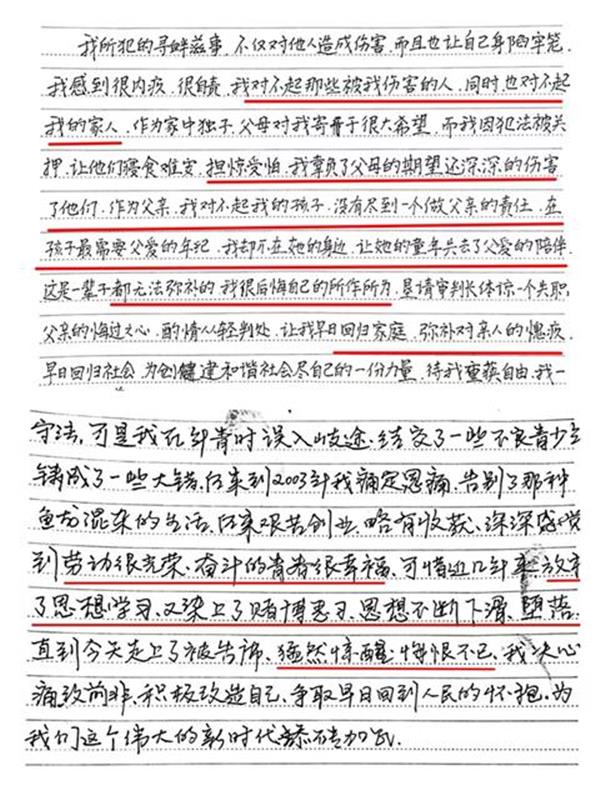 我所犯的寻衅滋事，不仅对他人造成伤害，而且也让自己身陷牢笼，
我感到很内疚，很自责，我对不起那些被我伤害的人，同时，也对不起
我的家人，作为家中独子，父母对我寄予很大希望，而我因犯法被关
押，让他们寝食难安，担惊受怕，我辜负了父母的期望还深深的伤害
了他们，作为父亲，我对不起我的孩子，没有尽到一个做父亲的责任，在
孩子最需要父爱的年纪，我却不在她的身边，让她的童年失去了父爱的陪伴，
这是一辈子都无法弥补的，我很后悔自己的所作所为，恳请审判长体谅一个失职
父亲的悔过之心，酌情从轻判处，让我早日回归家庭，弥补对亲人的愧疚，
早日回归社会，为创建和谐社会尽自己的一份力量，待我重获自由，我一
守法，可是我在年青时误入歧途，结交了一些不良青少年
铸成了一些大错，后来到2003年我痛定思痛，告别了那种
鱼龙混杂的生活，后来艰苦创业，略有收获，深深感觉
到劳动很光荣，奋斗的青春很幸福，可惜近几年来，放弃
了思想学习，又染上了赌博恶习，思想不断下滑，堕落，
直到今天走上了被告席，猛然惊醒，悔恨不已，我决心
痛改前非，积极改造自己，争取早日回到人民的怀抱，为
我们这个伟大的新时代添砖加瓦.